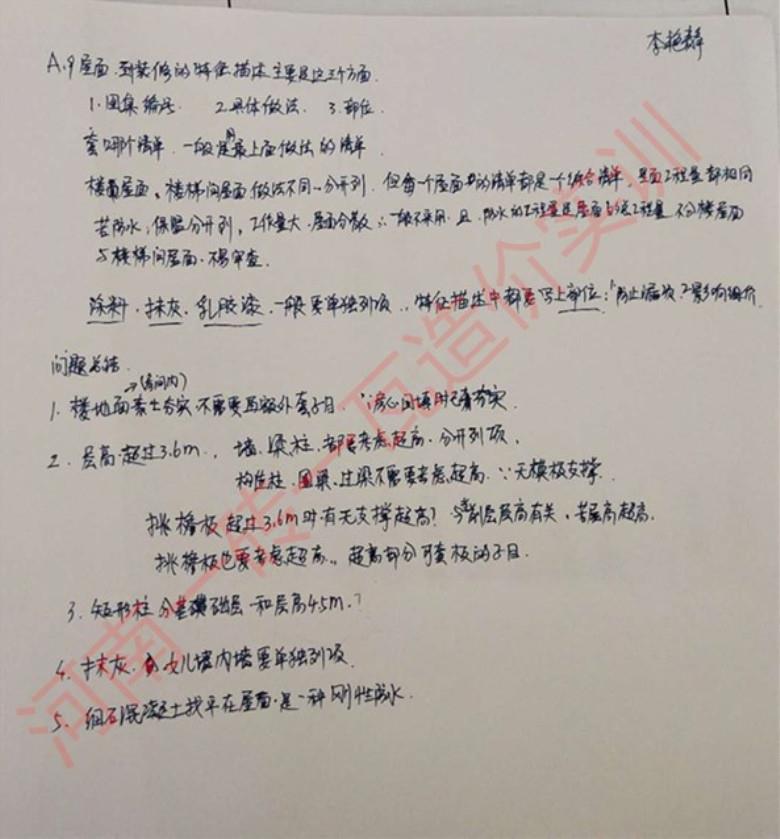 李艳静
A.9屋面.到装修的特征描述主要是这三个方面.
1.图集编号. 2.具体做法. 3.部位.
套哪个清单.一般是最上面做法的清单
楼面屋面、楼梯间屋面做法不同∴分开列.但每一个屋面的清单都是一个综合清单.里面工程量都相同
若防水,保温分开列,工作量大.屋面分散∴一般不采用.且.防水的工程量是屋面的总工程量 不分楼屋面
与楼梯间屋面.不易审查.
涂料.抹灰.乳胶漆.一般要单独列项.特征描述中都要写上部位:1防止漏项.2影响组价.
问题总结.
→(房间内)
1.楼地面素土夯实不需要再额外套子目.∵房心回填时已有夯实.
2.层高超过3.6m.,墙.梁.柱.都要考虑超高.分开列项.
构造柱.圈梁.过梁不需要考虑超高.∵无模板支撑.
挑檐板超过3.6m时有无支撑超高? 层高有关.若层高超高.
挑檐板也要考虑超高.,超高部分可套板的子目.
3.矩形柱分基础层和层高4.5m.?
4.抹灰.女儿墙内墙要单独列项.
5.细石混凝土找平在屋面.是一种刚性防水.
河南一砖一瓦造价实训